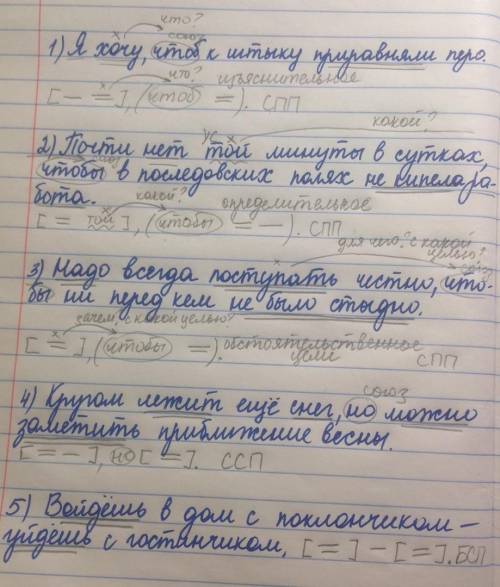 что?
х союз
1) Я хочу, чтоб к штыку приравняли перо.
х что? изъяснительное
[— =], (чтоб =). СПП
какой?
ус х
2) Почти нет той минуты в сутках,
союз
чтобы в последовских полях не кипела ра-
бота.
х какой? определительное
[= той], (чтобы = —). СПП
для чего? с какой
целью?
х союз
3) Надо всегда поступать честно, что-
бы ни перед кем не было стыдно.
зачем, с какой целью?
х
[=], (чтобы =). обстоятельственное
цели СПП
союз
4) Кругом лежит ещё снег, но можно
заметить приближение весны.
[= —], но [=]. ССП
5) Войдёшь в дом с поклончиком —
уйдёшь с гостинчиком. [=] — [=]. БСП